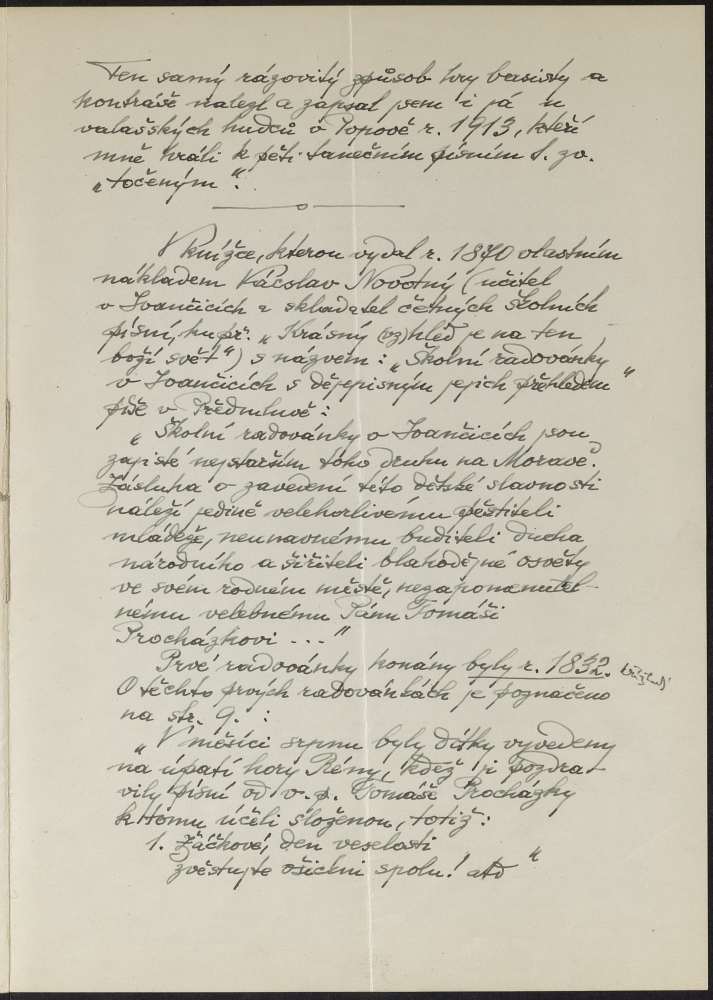 Ten samý rázovitý způsob hry basisty a
kontráše nalezl a zapsal jsem i já u
valašských hudců v Popově r. 1913, kteří
mně hráli k pěti tanečním písním t. zv.
„točeným“.
V knížce, kterou vydal r. 1870 vlastním
nákladem Václav Novotný (učitel
v Ivančicích a skladatel četných školních
písní, ku př. „Krásný vz)hled je na ten
boží svět“) s názvem: „Školní radovánky
v Ivančicích s dějepisným jejich přehledem“
píše v Předmluvě:
„Školní radovánky v Ivančicích jsou
zajisté nejstarším toho druhu na Moravě.
Zásluha o zavedení této dětské slavnosti
náleží jedině velehorlivému pěstiteli
mládeže, neunavnému buditeli ducha
národního a šiřiteli blahodějné osvěty
ve svém rodném městě, nezapomenutel-
nému velebnému Pánu Tomáši
Procházkovi ...“
Prvé radovánky konány byly r. 1832.
O těchto prvých radovánkách je poznačeno
na str. 9. :
„V měsíci srpnu byly dítky vyvedeny
na úpatí hory Rény, kdež ji pozdra-
vily písní od v. p. Tomáše Procházky
k tomu účeli složenou, totiž:
1. Žáčkové, den veselosti
zvěstujte všickni spolu! atd“